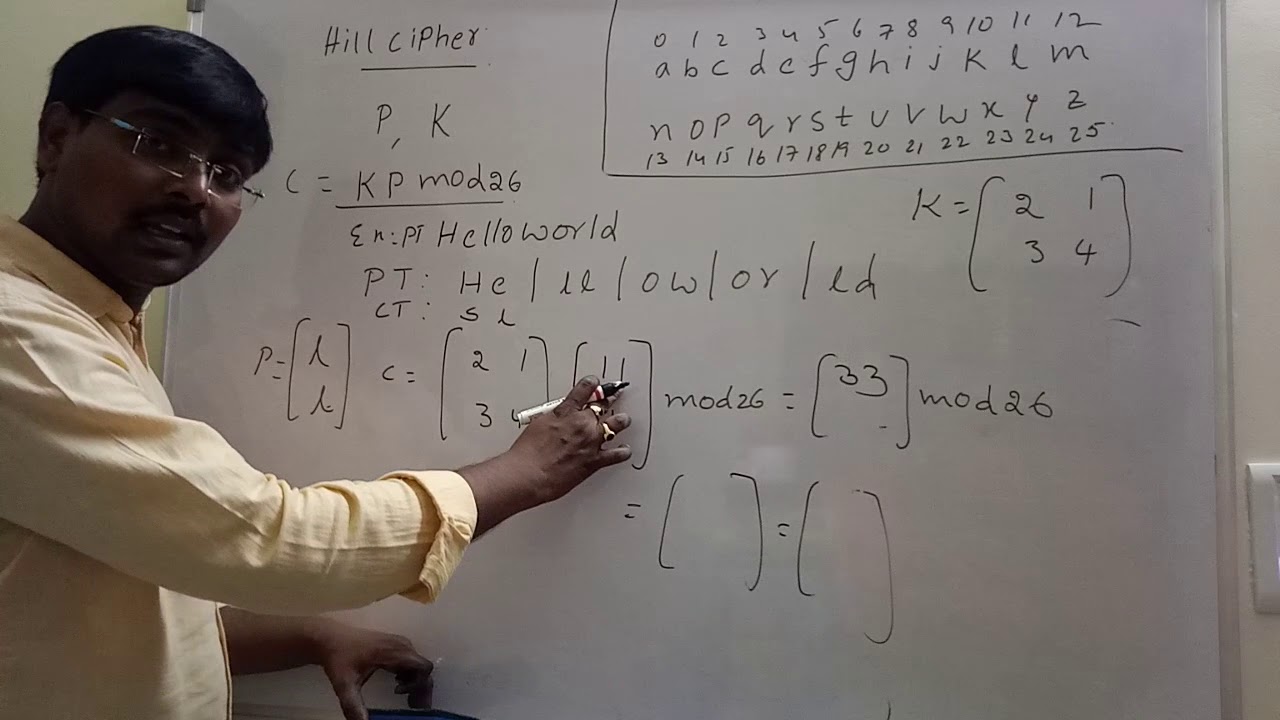 Hill cipher
P, K
C = KP mod26
Ex: PT Helloworld
PT: He / ll / ow / or / ld
CT: s l
0 1 2 3 4 5 6 7 8 9 10 11 12
a b c d e f g h i j k l m
n o p q r s t u v w x y z
13 14 15 16 17 18 19 20 21 22 23 24 25
K = ( 2 1
3 4 )
P = [ l
l ]
C = ( 2 1
3 4 ) [ 11
] mod26 = [ 33
] mod26
= ( ) = ( )